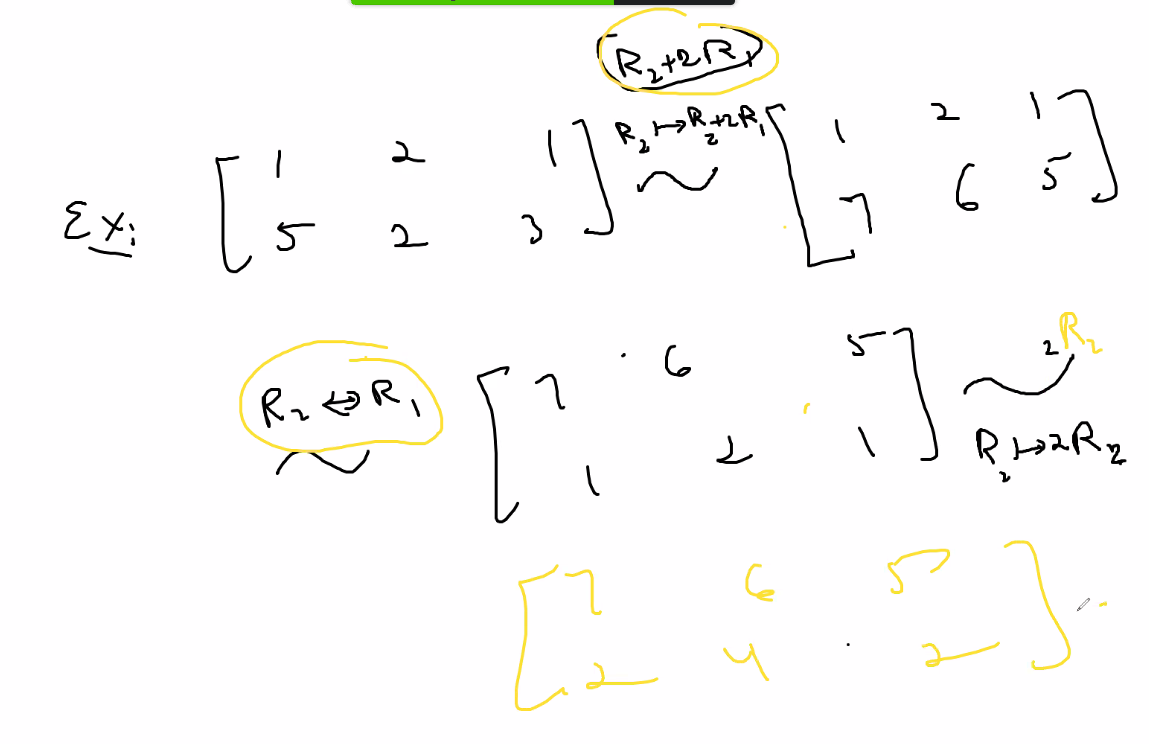 R₂+2R₁
Ex: [1 2 1; 5 2 3] R₂↦R₂+2R₁ ~ [1 2 1; 7 6 5]
R₂ ↔ R₁ ~ [7 6 5; 1 2 1] 2R₂ ~ R₂↦2R₂
[7 6 5; 2 4 2]